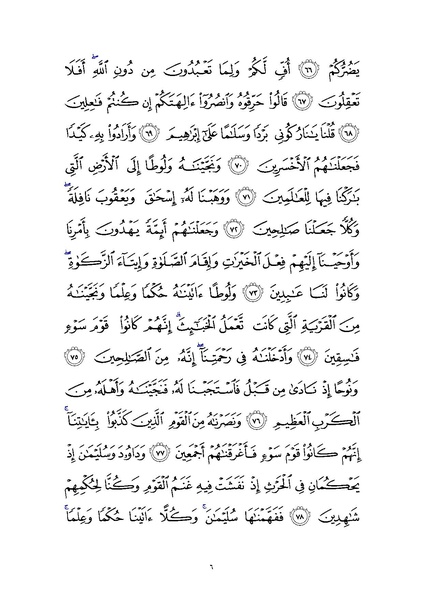 يَضُرُّكُمْ ۝٦٦ أُفٍّ لَّكُمْ وَلِمَا تَعْبُدُونَ مِن دُونِ ٱللَّهِ ۖ أَفَلَا
تَعْقِلُونَ ۝٦٧ قَالُوا۟ حَرِّقُوهُ وَٱنصُرُوٓا۟ ءَالِهَتَكُمْ إِن كُنتُمْ فَٰعِلِينَ
۝٦٨ قُلْنَا يَٰنَارُ كُونِى بَرْدًا وَسَلَٰمًا عَلَىٰٓ إِبْرَٰهِيمَ ۝٦٩ وَأَرَادُوا۟ بِهِۦ كَيْدًا
فَجَعَلْنَٰهُمُ ٱلْأَخْسَرِينَ ۝٧٠ وَنَجَّيْنَٰهُ وَلُوطًا إِلَى ٱلْأَرْضِ ٱلَّتِى
بَٰرَكْنَا فِيهَا لِلْعَٰلَمِينَ ۝٧١ وَوَهَبْنَا لَهُۥٓ إِسْحَٰقَ وَيَعْقُوبَ نَافِلَةً ۖ
وَكُلًّا جَعَلْنَا صَٰلِحِينَ ۝٧٢ وَجَعَلْنَٰهُمْ أَئِمَّةً يَهْدُونَ بِأَمْرِنَا
وَأَوْحَيْنَآ إِلَيْهِمْ فِعْلَ ٱلْخَيْرَٰتِ وَإِقَامَ ٱلصَّلَوٰةِ وَإِيتَآءَ ٱلزَّكَوٰةِ ۖ
وَكَانُوا۟ لَنَا عَٰبِدِينَ ۝٧٣ وَلُوطًا ءَاتَيْنَٰهُ حُكْمًا وَعِلْمًا وَنَجَّيْنَٰهُ
مِنَ ٱلْقَرْيَةِ ٱلَّتِى كَانَت تَّعْمَلُ ٱلْخَبَٰٓئِثَ ۗ إِنَّهُمْ كَانُوا۟ قَوْمَ سَوْءٍ
فَٰسِقِينَ ۝٧٤ وَأَدْخَلْنَٰهُ فِى رَحْمَتِنَآ ۖ إِنَّهُۥ مِنَ ٱلصَّٰلِحِينَ ۝٧٥
وَنُوحًا إِذْ نَادَىٰ مِن قَبْلُ فَٱسْتَجَبْنَا لَهُۥ فَنَجَّيْنَٰهُ وَأَهْلَهُۥ مِنَ
ٱلْكَرْبِ ٱلْعَظِيمِ ۝٧٦ وَنَصَرْنَٰهُ مِنَ ٱلْقَوْمِ ٱلَّذِينَ كَذَّبُوا۟ بِـَٔايَٰتِنَآ ۚ
إِنَّهُمْ كَانُوا۟ قَوْمَ سَوْءٍ فَأَغْرَقْنَٰهُمْ أَجْمَعِينَ ۝٧٧ وَدَاوُۥدَ وَسُلَيْمَٰنَ إِذْ
يَحْكُمَانِ فِى ٱلْحَرْثِ إِذْ نَفَشَتْ فِيهِ غَنَمُ ٱلْقَوْمِ وَكُنَّا لِحُكْمِهِمْ
شَٰهِدِينَ ۝٧٨ فَفَهَّمْنَٰهَا سُلَيْمَٰنَ ۚ وَكُلًّا ءَاتَيْنَا حُكْمًا وَعِلْمًا ۚ
٦